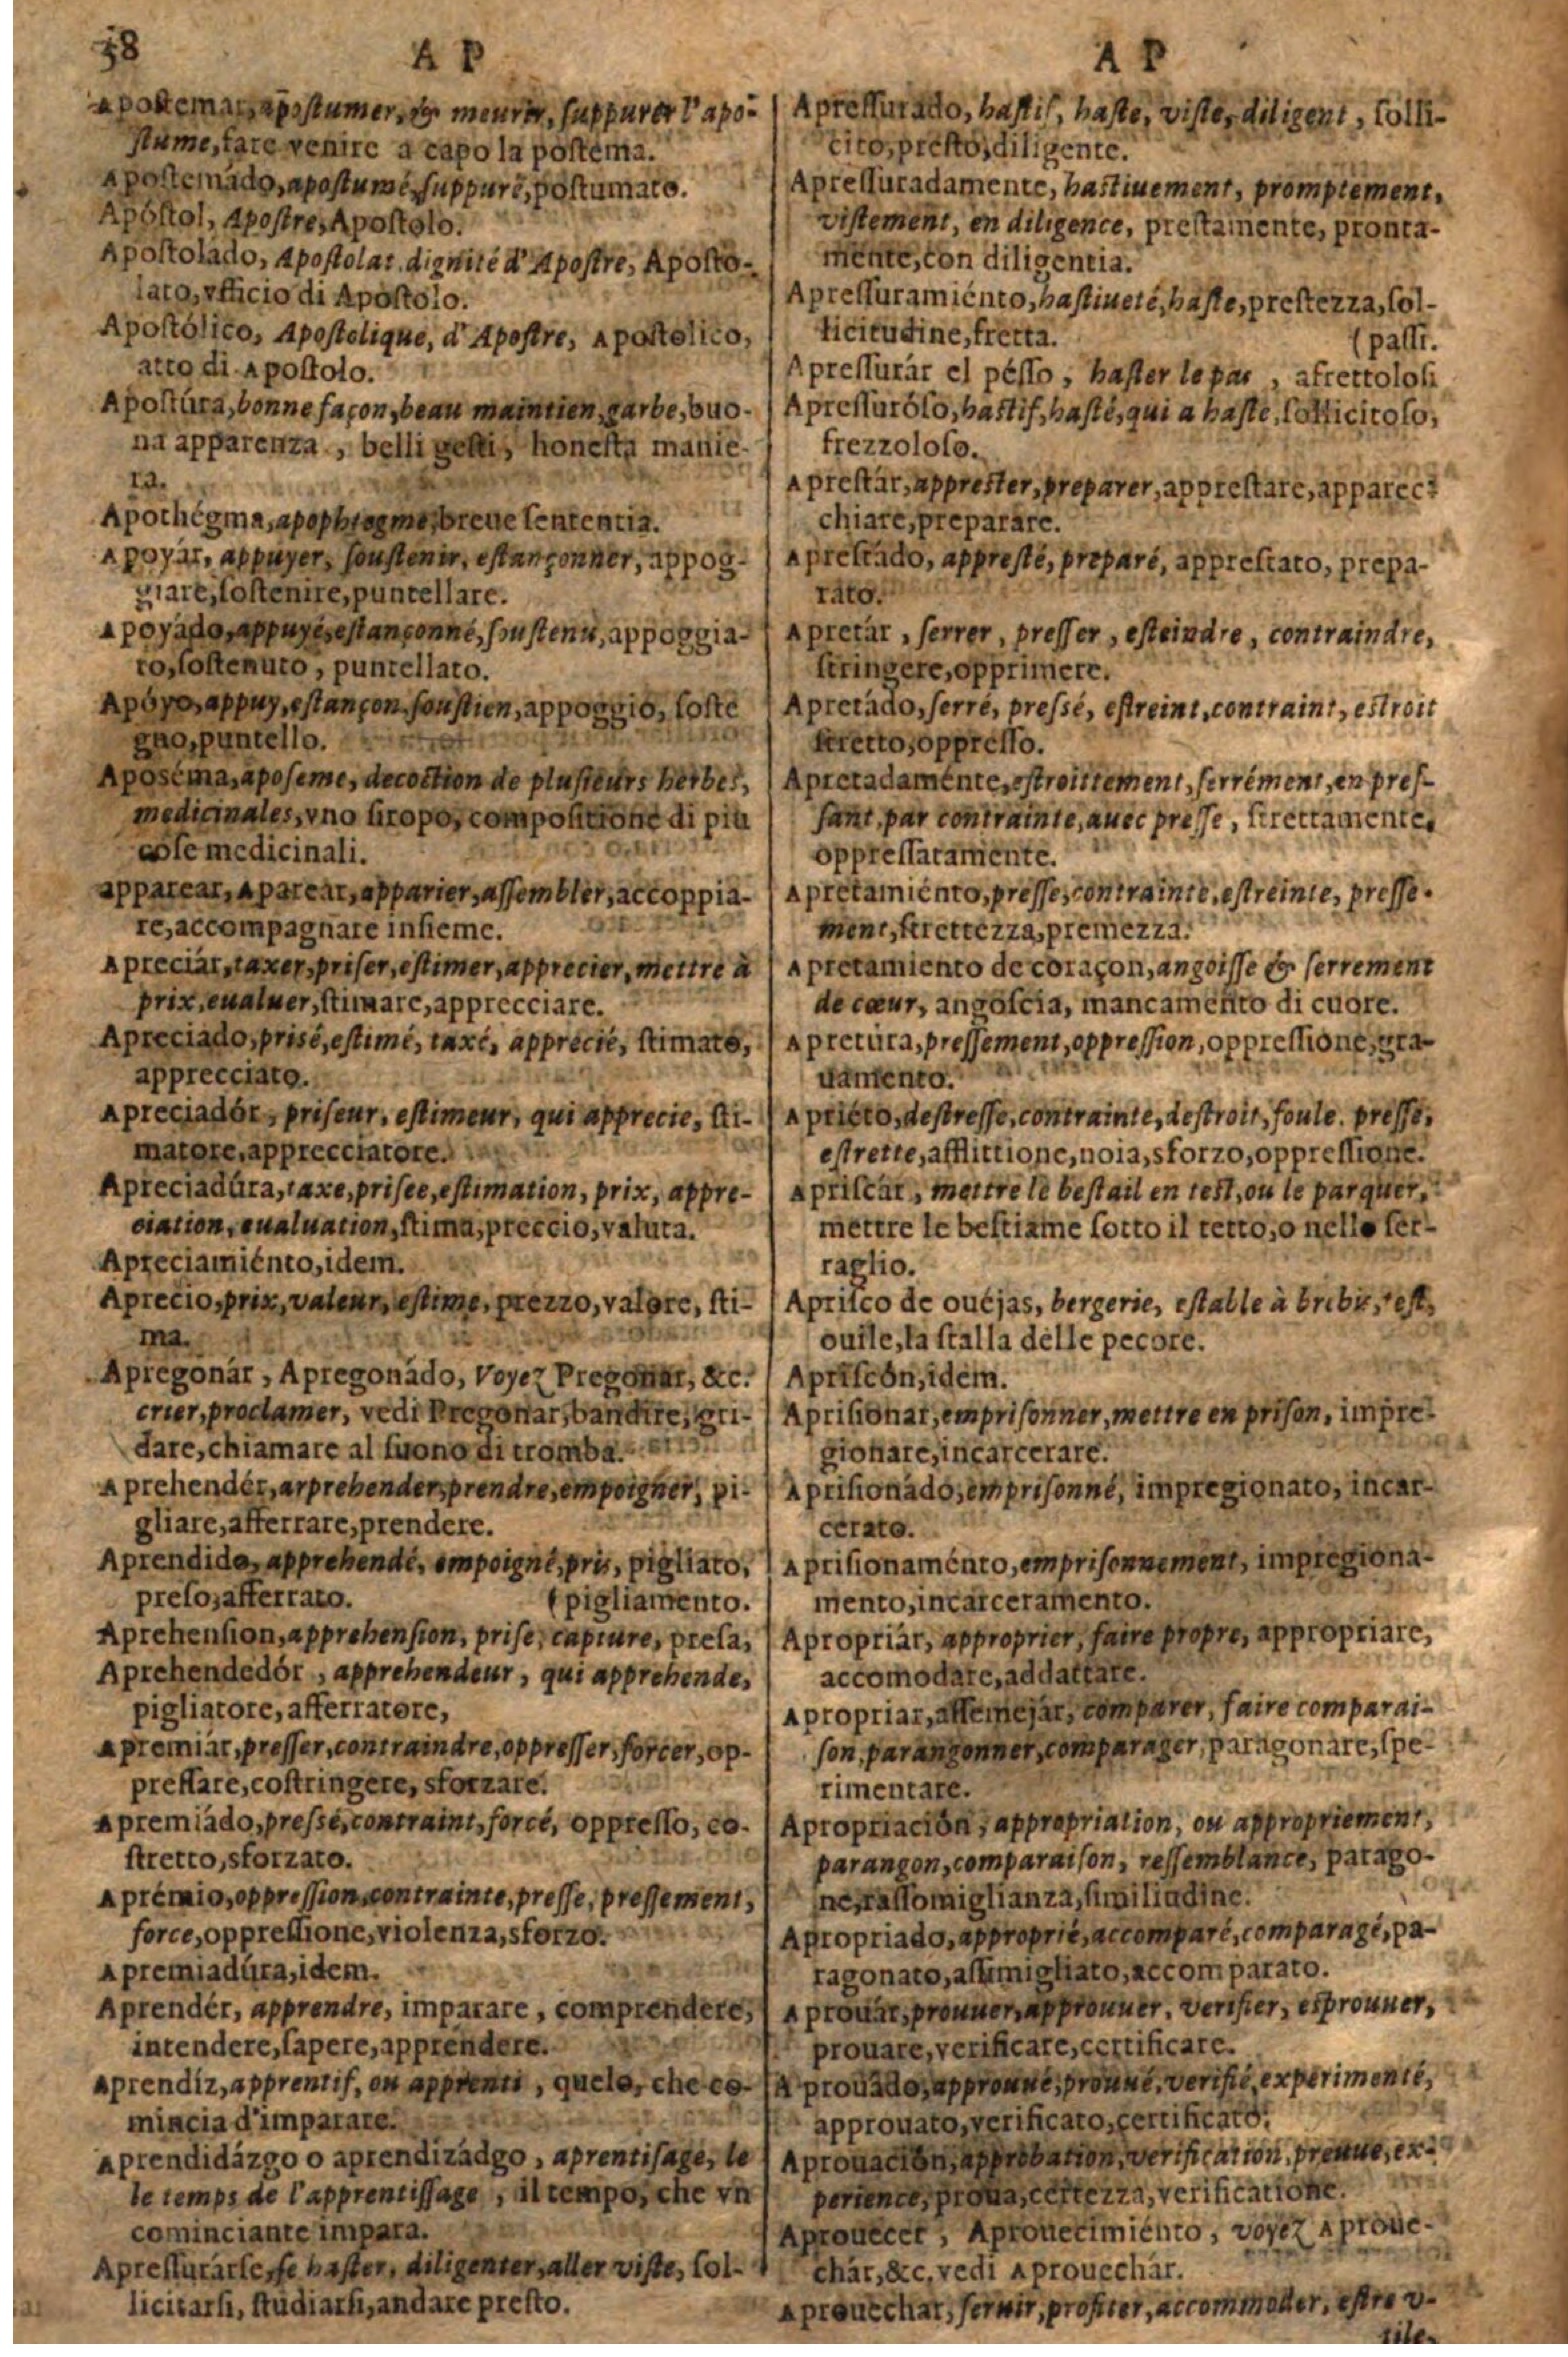 58
A P
A P
Apostemar, apostumer, & meurir, suppurer l'apo-
stume, fare venire a capo la postema.
Apostemádo, apostumé, suppuré, postumato.
Apóstol, Apostre, Apostolo.
Apostolado, Apostolat, dignité d'Apostre, Aposto-
lato, vfficio di Apostolo.
Apostólico, Apostolique, d'Apostre, Apostolico,
atto di Apostolo.
Apostúra, bonne façon, beau maintien, garbe, buo-
na apparenza, belli gesti, honesta manie-
ra.
Apothégma, apophtegme, breue sententia.
Apoyár, appuyer, soustenir, estançonner, appog-
giare, sostenire, puntellare.
Apoyádo, appuyé, estançonné, soustenu, appoggia-
to, sostenuto, puntellato.
Apóyo, appuy, estançon, soustien, appoggio, soste
gno, puntello.
Aposéma, aposeme, decoction de plusieurs herbes,
medicinales, vno siropo, compositione di più
cose medicinali.
apparear, Aparear, apparier, assembler, accoppia-
re, accompagnare insieme.
Apreciár, taxer, priser, estimer, apprecier, mettre à
prix, eualuer, stimare, apprecciare.
Apreciado, prisé, estimé, taxé, apprecié, stimato,
apprecciato.
Apreciadór, priseur, estimeur, qui apprecie, sti-
matore, apprecciatore.
Apreciadúra, taxe, prisee, estimation, prix, appre-
ciation, eualuation, stima, preccio, valuta.
Apreciamiénto, idem.
Aprecio, prix, valeur, estime, prezzo, valore, sti-
ma.
Apregonár, Apregonádo, Voyez Pregonar, &c.
crier, proclamer, vedi Pregonar, bandire, gri-
dare, chiamare al suono di tromba.
Aprehendér, arprehender, prendre, empoigner, pi-
gliare, afferrare, prendere.
Aprendido, apprehendé, empoigné, pris, pigliato,
preso, afferrato. (pigliamento.
Aprehension, apprehension, prise, capture, presa,
Aprehendedór, apprehendeur, qui apprehende,
pigliatore, afferratore,
Apremiár, presser, contraindre, oppresser, forcer, op-
pressare, costringere, sforzare.
Apremiádo, pressé, contraint, forcé, oppresso, co-
stretto, sforzato.
Aprémio, oppression, contrainte, presse, pressement,
force, oppressione, violenza, sforzo.
Apremiadúra, idem.
Aprendér, apprendre, imparare, comprendere,
intendere, sapere, apprendere.
Aprendíz, apprentif, ou apprenti, quelo, che co-
mincia d'imparare.
Aprendidázgo o aprendizádgo, aprentisage, le
le temps de l'apprentissage, il tempo, che vn
cominciante impara.
Apressurárse, se haster, diligenter, aller viste, sol-
licitarsi, studiarsi, andare presto.
Apressurádo, hastif, haste, viste, diligent, solli-
cito, presto, diligente.
Apressuradamente, hastiuement, promptement,
vistement, en diligence, prestamente, pronta-
mente, con diligentia.
Apressuramiénto, hastiueté, haste, prestezza, sol-
licitudine, fretta. (passi.
Apressurár el pésso, haster le pas, afrettolosi
Apressuróso, hastif, hasté, qui a haste, sollicitoso,
frezzoloso.
Aprestár, apprester, preparer, apprestare, apparec-
chiare, preparare.
Aprestádo, appresté, preparé, apprestato, prepa-
rato.
Apretár, serrer, presser, esteindre, contraindre,
stringere, opprimere.
Apretádo, serré, pressé, estreint, contraint, estroit
stretto, oppresso.
Apretadaménte, estroittement, serrément, en pres-
sant, par contrainte, auec presse, strettamente,
oppressatamente.
Apretamiénto, presse, contrainte, estreinte, presse-
ment, strettezza, premezza.
Apretamiento de coraçon, angoisse & serrement
de cœur, angoscia, mancamento di cuore.
Apretúra, pressement, oppression, oppressione, gra-
uamento.
Apriéto, destresse, contrainte, destroit, foule, presse,
estrette, afflittione, noia, sforzo, oppressione.
Apriscár, mettre le bestail en test, ou le parquer,
mettre le bestiame sotto il tetto, o nello ser-
raglio.
Aprisco de ouéjas, bergerie, estable à brebis, test,
ouile, la stalla delle pecore.
Apriscón, idem.
Aprisionar, emprisonner, mettre en prison, impre-
gionare, incarcerare.
Aprisionádo, emprisonné, impregionato, incar-
cerato.
Aprisionaménto, emprisonnement, impregiona-
mento, incarceramento.
Apropriár, approprier, faire propre, appropriare,
accomodare, addattare.
Apropriar, assemejár, comparer, faire comparai-
son, parangonner, comparager, paragonare, spe-
rimentare.
Apropriación, appropriation, ou appropriement,
parangon, comparaison, ressemblance, parago-
ne, rassomiglianza, similiudine.
Apropriado, approprié, accomparé, comparagé, pa-
ragonato, assimigliato, accomparato.
Aprouár, prouuer, approuuer, verifier, esprouuer,
prouare, verificare, certificare.
Aprouádo, approuué, prouué, verifié, experimenté,
approuato, verificato, certificato.
Aprouación, approbation, verification, preuue, ex-
perience, proua, certezza, verificatione.
Aprouecer, Aprouecimiénto, voyez Aproue-
chár, &c. vedi Aprouechár.
Aprouechar, seruir, profiter, accommoder, estre v-
tile,